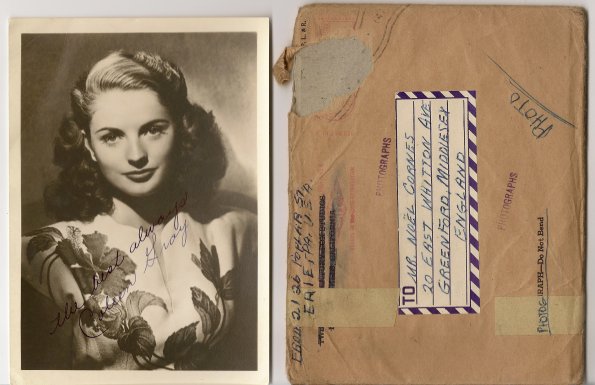 the best always
Coleen Gray
PHOTO
PHOTOGRAPHS
TO MR. NOËL CORNES
20 EAST WHITTON AVE
GREENFORD, MIDDLESEX
ENGLAND
PHOTOGRAPHS
PHOTOGRAPH—Do Not Bend
ERIE, PA, U.S.A